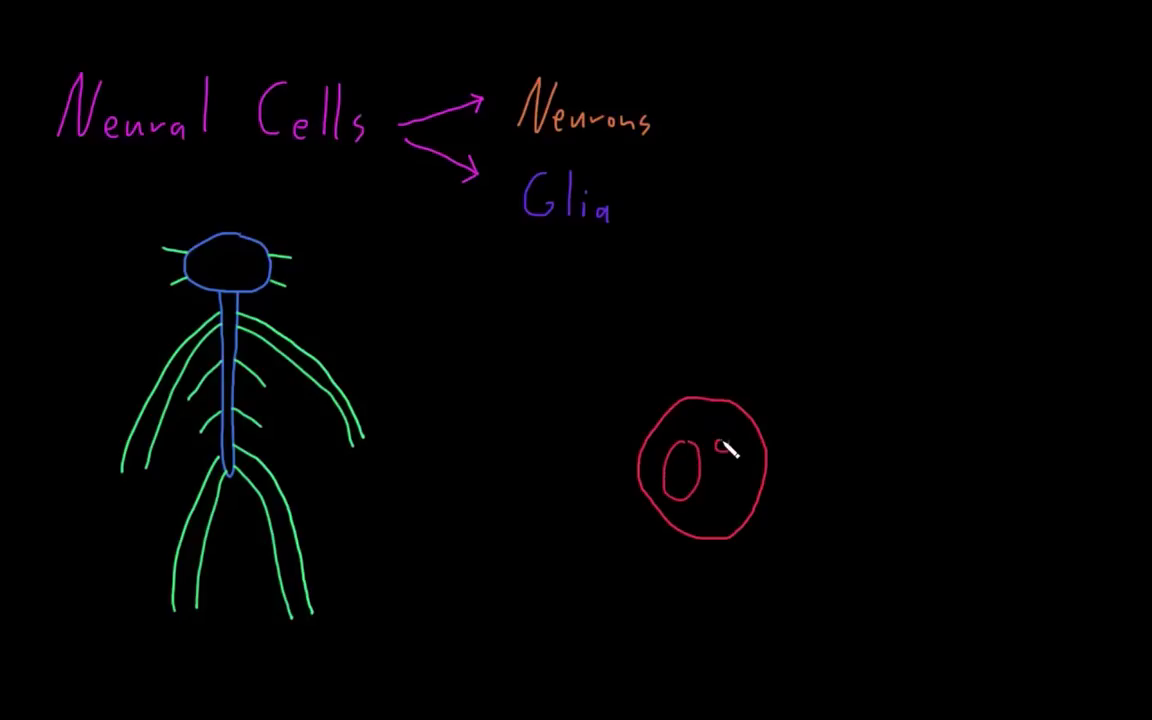 Neural Cells
Neurons
Glia